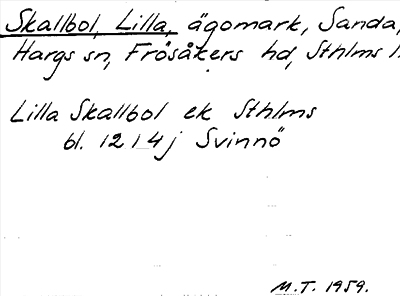 Skallbol, Lilla, ägomark, Sanda,
Hargs sn, Frösåkers hd, Sthlms l.
Lilla Skallbol ek Sthlms
bl. 12 1 4j Svinnö
M.T. 1959.